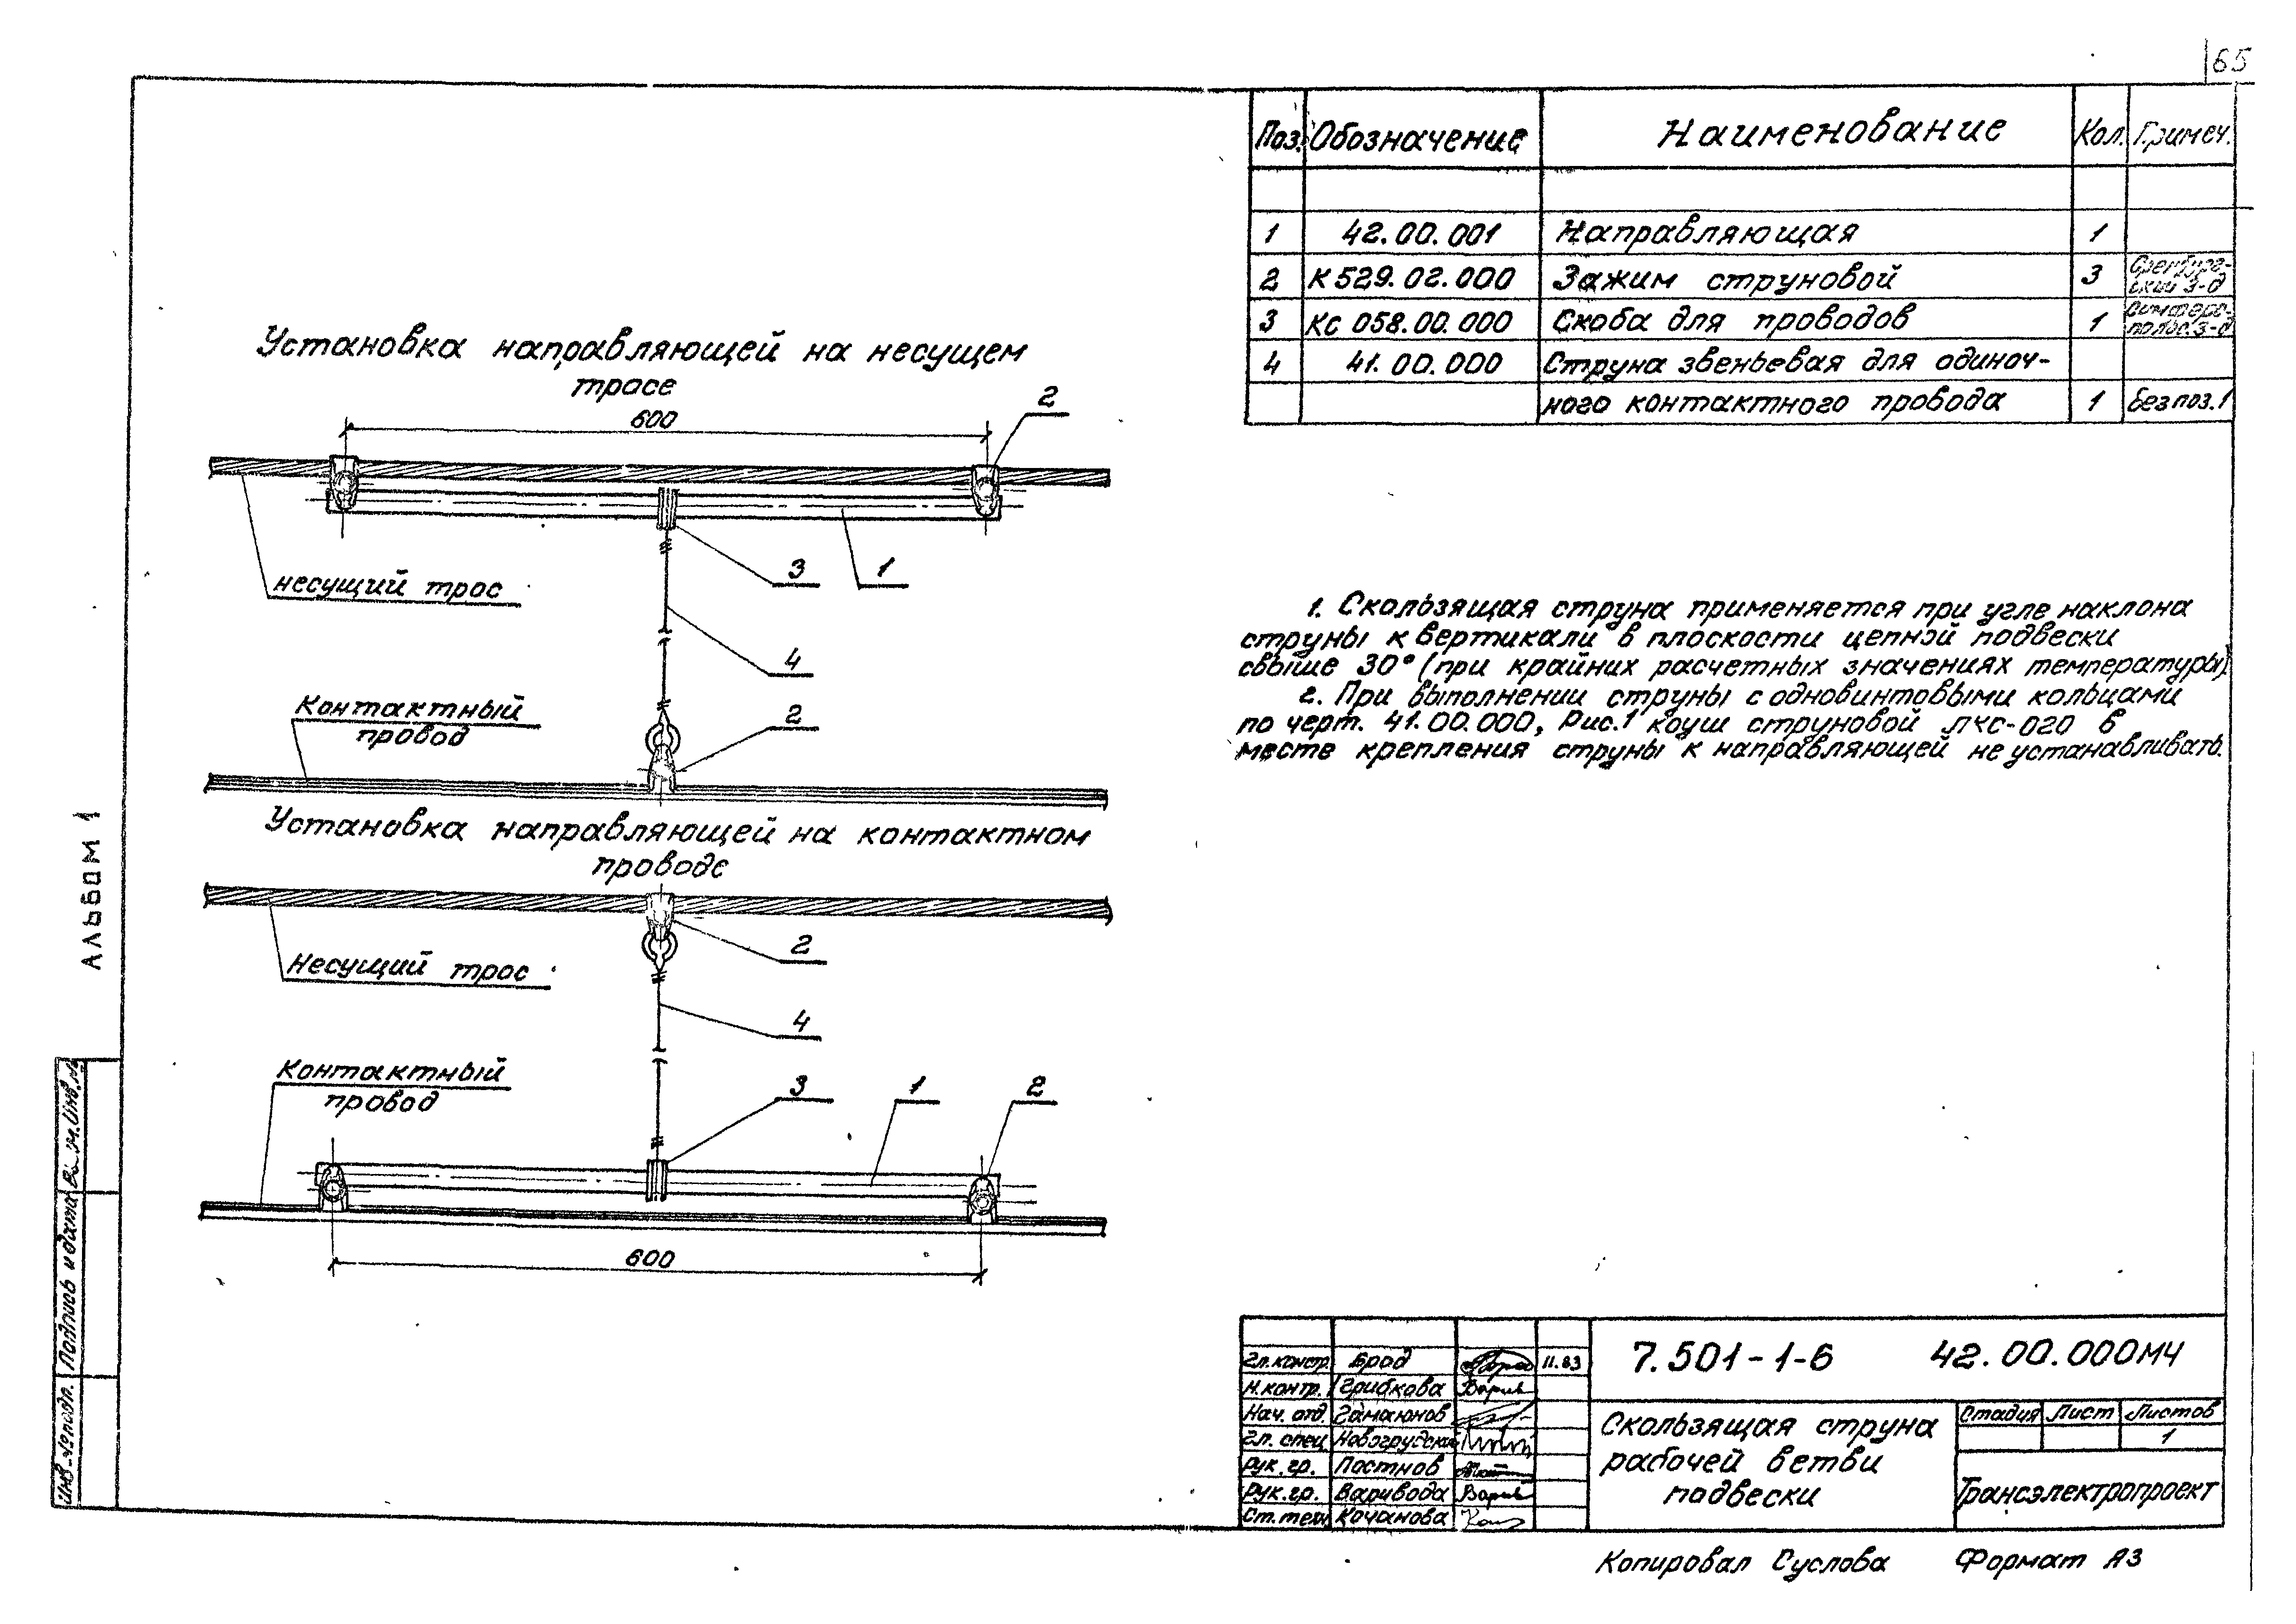 65
Поз. Обозначение Наименование Кол. Примеч.
1 42.00.001 Направляющая 1
2 К529.02.000 Зажим струновой 3 Оренбург-
ский з-д
3 КС 058.00.000 Скоба для проводов 1 Симферо-
польс. з-д
4 41.00.000 Струна звеньевая для одиноч-
ного контактного провода 1 без поз.1
Установка направляющей на несущем
тросе
600
2
несущий трос
3
1
4
Контактный
провод
2
Установка направляющей на контактном
проводе
2
Несущий трос
4
Контактный
провод
3
1
2
600
1. Скользящая струна применяется при угле наклона
струны к вертикали в плоскости цепной подвески
свыше 30° (при крайних расчетных значениях температуры)
2. При выполнении струны с одновинтовыми кольцами
по черт. 41.00.000, Рис.1 коуш струновой ЛКС-020 в
месте крепления струны к направляющей не устанавливать.
Альбом 1
Взам. Инв.№
Подпись и дата
Инв.№подл.
Гл.констр. Брод 11.83
Н.контр. Грибкова
Нач. отд. Гамаюнов
Гл. спец.
Рук. гр. Постнов
Рук.гр. Варивода
Ст.техн Кочанова
7.501-1-6 42.00.000МЧ
Скользящая струна
рабочей ветви
подвески
Стадия Лист Листов
1
Трансэлектропроект
Копировал Суслова Формат А3